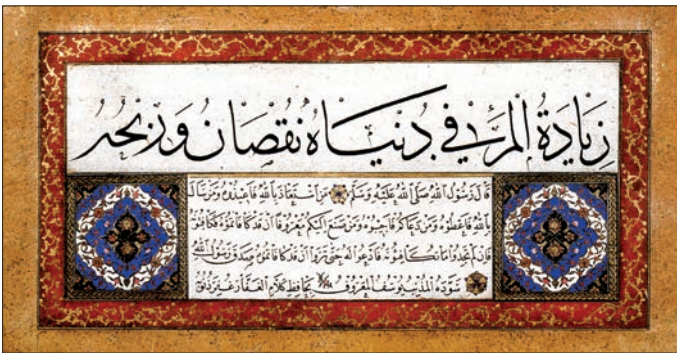 زِيَادَةُ الْمَرْءِ فِي دُنْيَاهُ نُقْصَانٌ وَرِبْحُهُ
قَالَ رَسُولُ اللهِ صَلَّى اللهُ عَلَيْهِ وَسَلَّمَ مَنِ اسْتَعَاذَ بِاللهِ فَأَعِيذُوهُ وَمَنْ سَأَلَ
بِاللهِ فَأَعْطُوهُ وَمَنْ دَعَاكُمْ فَأَجِيبُوهُ وَمَنْ صَنَعَ إِلَيْكُمْ مَعْرُوفًا أَنْ قَدْ كَافَأْتُمُوهُ فَكَافِئُوهُ
فَإِنْ لَمْ تَجِدُوا مَا تُكَافِئُونَهُ فَادْعُوا لَهُ حَتَّى تَرَوْا أَنْ قَدْ كَافَأْتُمُوهُ صَدَقَ رَسُولُ اللهِ
سَوَّدَهُ الْمُذْنِبُ يُوسُفُ الْمَعْرُوفُ بِحَافِظِ كَلَامِ الْغَفَّارِ غُفِرَ ذُنُوبُهُ